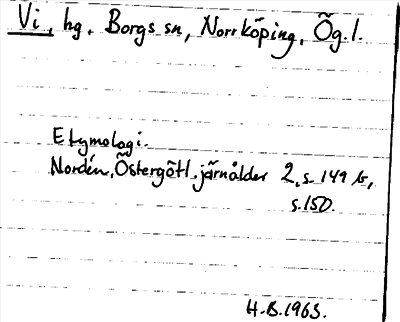 Vi, hg. Borgs sn, Norrköping, Ög.l.
Etymologi.
Nordén, Östergötl. järnålder 2, s. 149 f,
s. 150.
H.B. 1963.